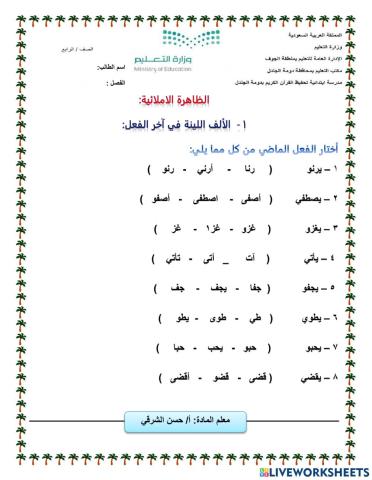 المملكة العربية السعودية
وزارة التعليم
الإدارة العامة للتعليم بمنطقة الجوف
مكتب التعليم بمحافظة دومة الجندل
مدرسة ابتدائية تحفيظ القرآن الكريم بدومة الجندل
وزارة التعـــليم
Ministry of Education
الصف / الرابع
اسم الطالب:
الفصل :
الظاهرة الاملائية:
١- الألف اللينة في آخر الفعل:
أختار الفعل الماضي من كل مما يلي:
١ – يرنو ( رنا - أرني - رنو )
٢ – يصطفي ( أصفى - اصطفى - أصفو )
٣ – يغزو ( غزو - غزا - غز )
٤ – يأتي ( آت _ أتى - تأتي )
٥ – يجفو ( جفا - يجف - جف )
٦ – يطوي ( طي - طوى - يطو )
٧ – يحبو ( حبو - يحب - حبا )
٨ – يقضي ( قضى - قضو - أقضى )
معلم المادة: أ/ حسن الشرفي
LIVEWORKSHEETS